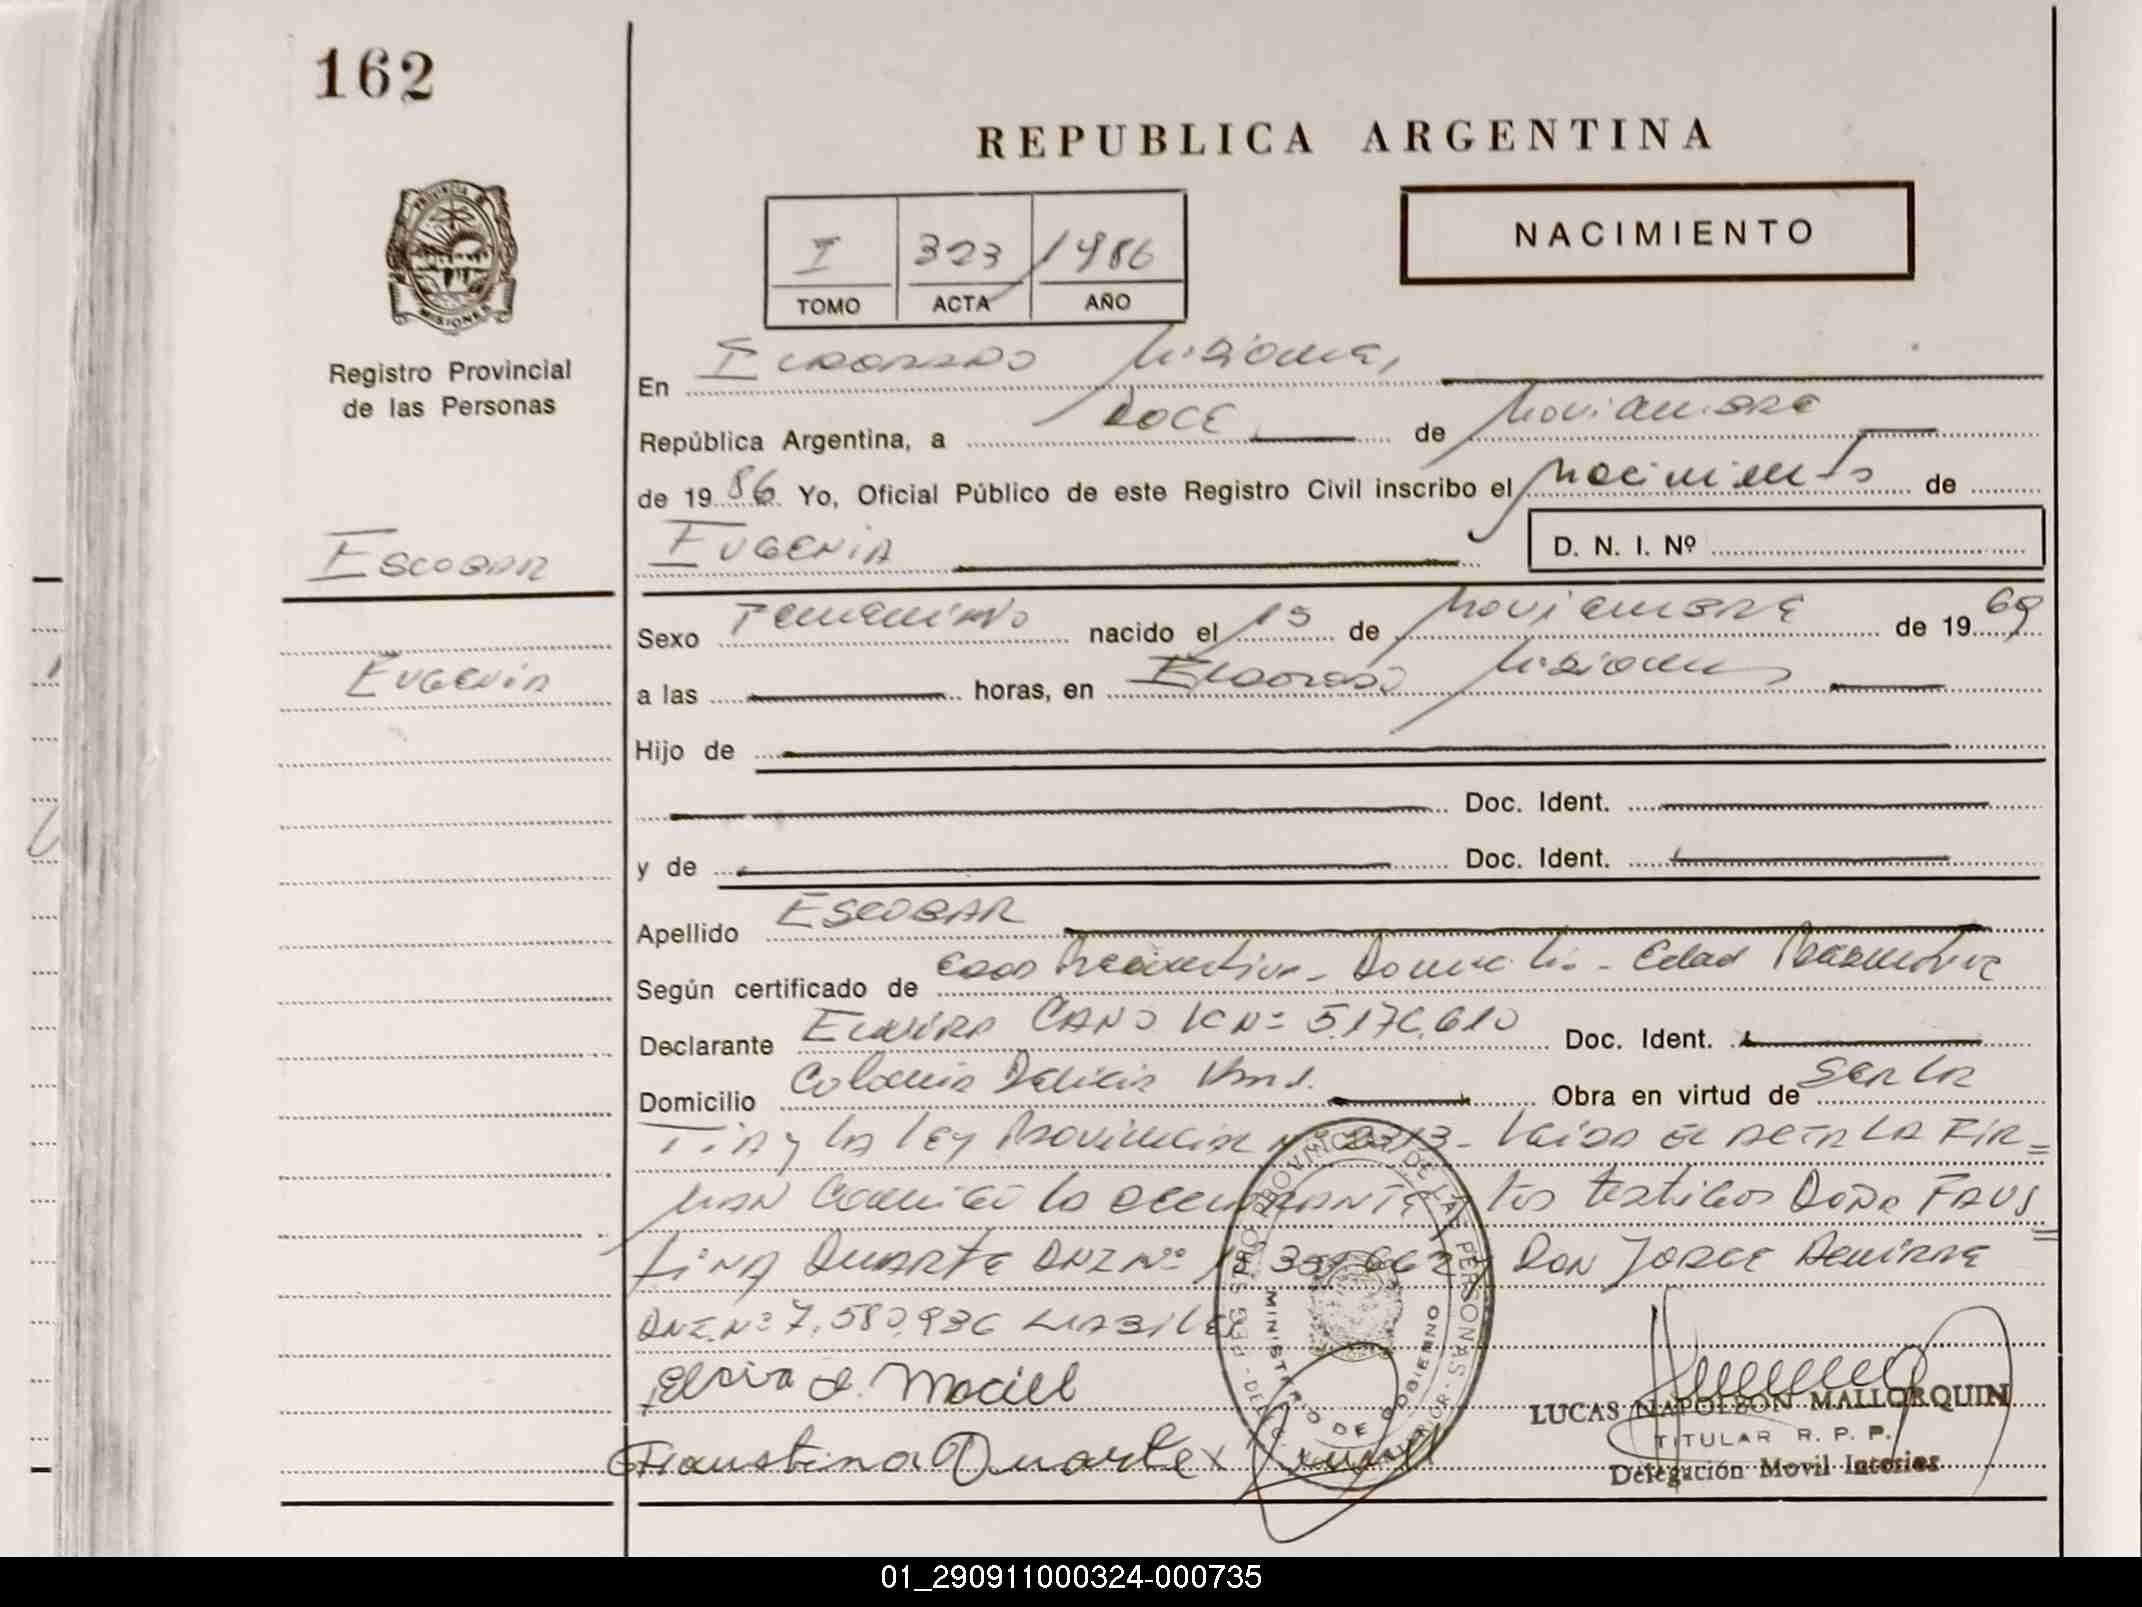 162
REPUBLICA ARGENTINA
NACIMIENTO
I 323 1986
TOMO ACTA AÑO
PROVINCIA DE
MISIONES
Registro Provincial
de las Personas
En Eldorado Misiones,
República Argentina, a Doce de Noviembre
de 1986 Yo, Oficial Público de este Registro Civil inscribo el nacimiento de
Escobar
Eugenia
Eugenia
D. N. I. Nº
Sexo Femenino nacido el 15 de Noviembre de 1969
a las horas, en Eldorado Misiones
Hijo de
Doc. Ident.
y de Doc. Ident.
Apellido ESCOBAR
Según certificado de Edad
Declarante Elvira Doc. Ident.
Domicilio Colonia Delicia Obra en virtud de Senten
cia y la Ley Provincial Nº 2313- Leída el acta la fir=
man conmigo la declarante y los testigos Doña Faus
tina Duarte DNI Nº y Don Jorge Aguirre
DNI. Nº 7.580.936 habiles
Elvira Maciel
Faustina Duarte
REGISTRO PROVINCIAL DE LAS PERSONAS
MINISTERIO DE GOBIERNO
LUCAS NAPOLEON MALLORQUIN
TITULAR R. P. P.
Delegación Movil Interior
01_290911000324-000735